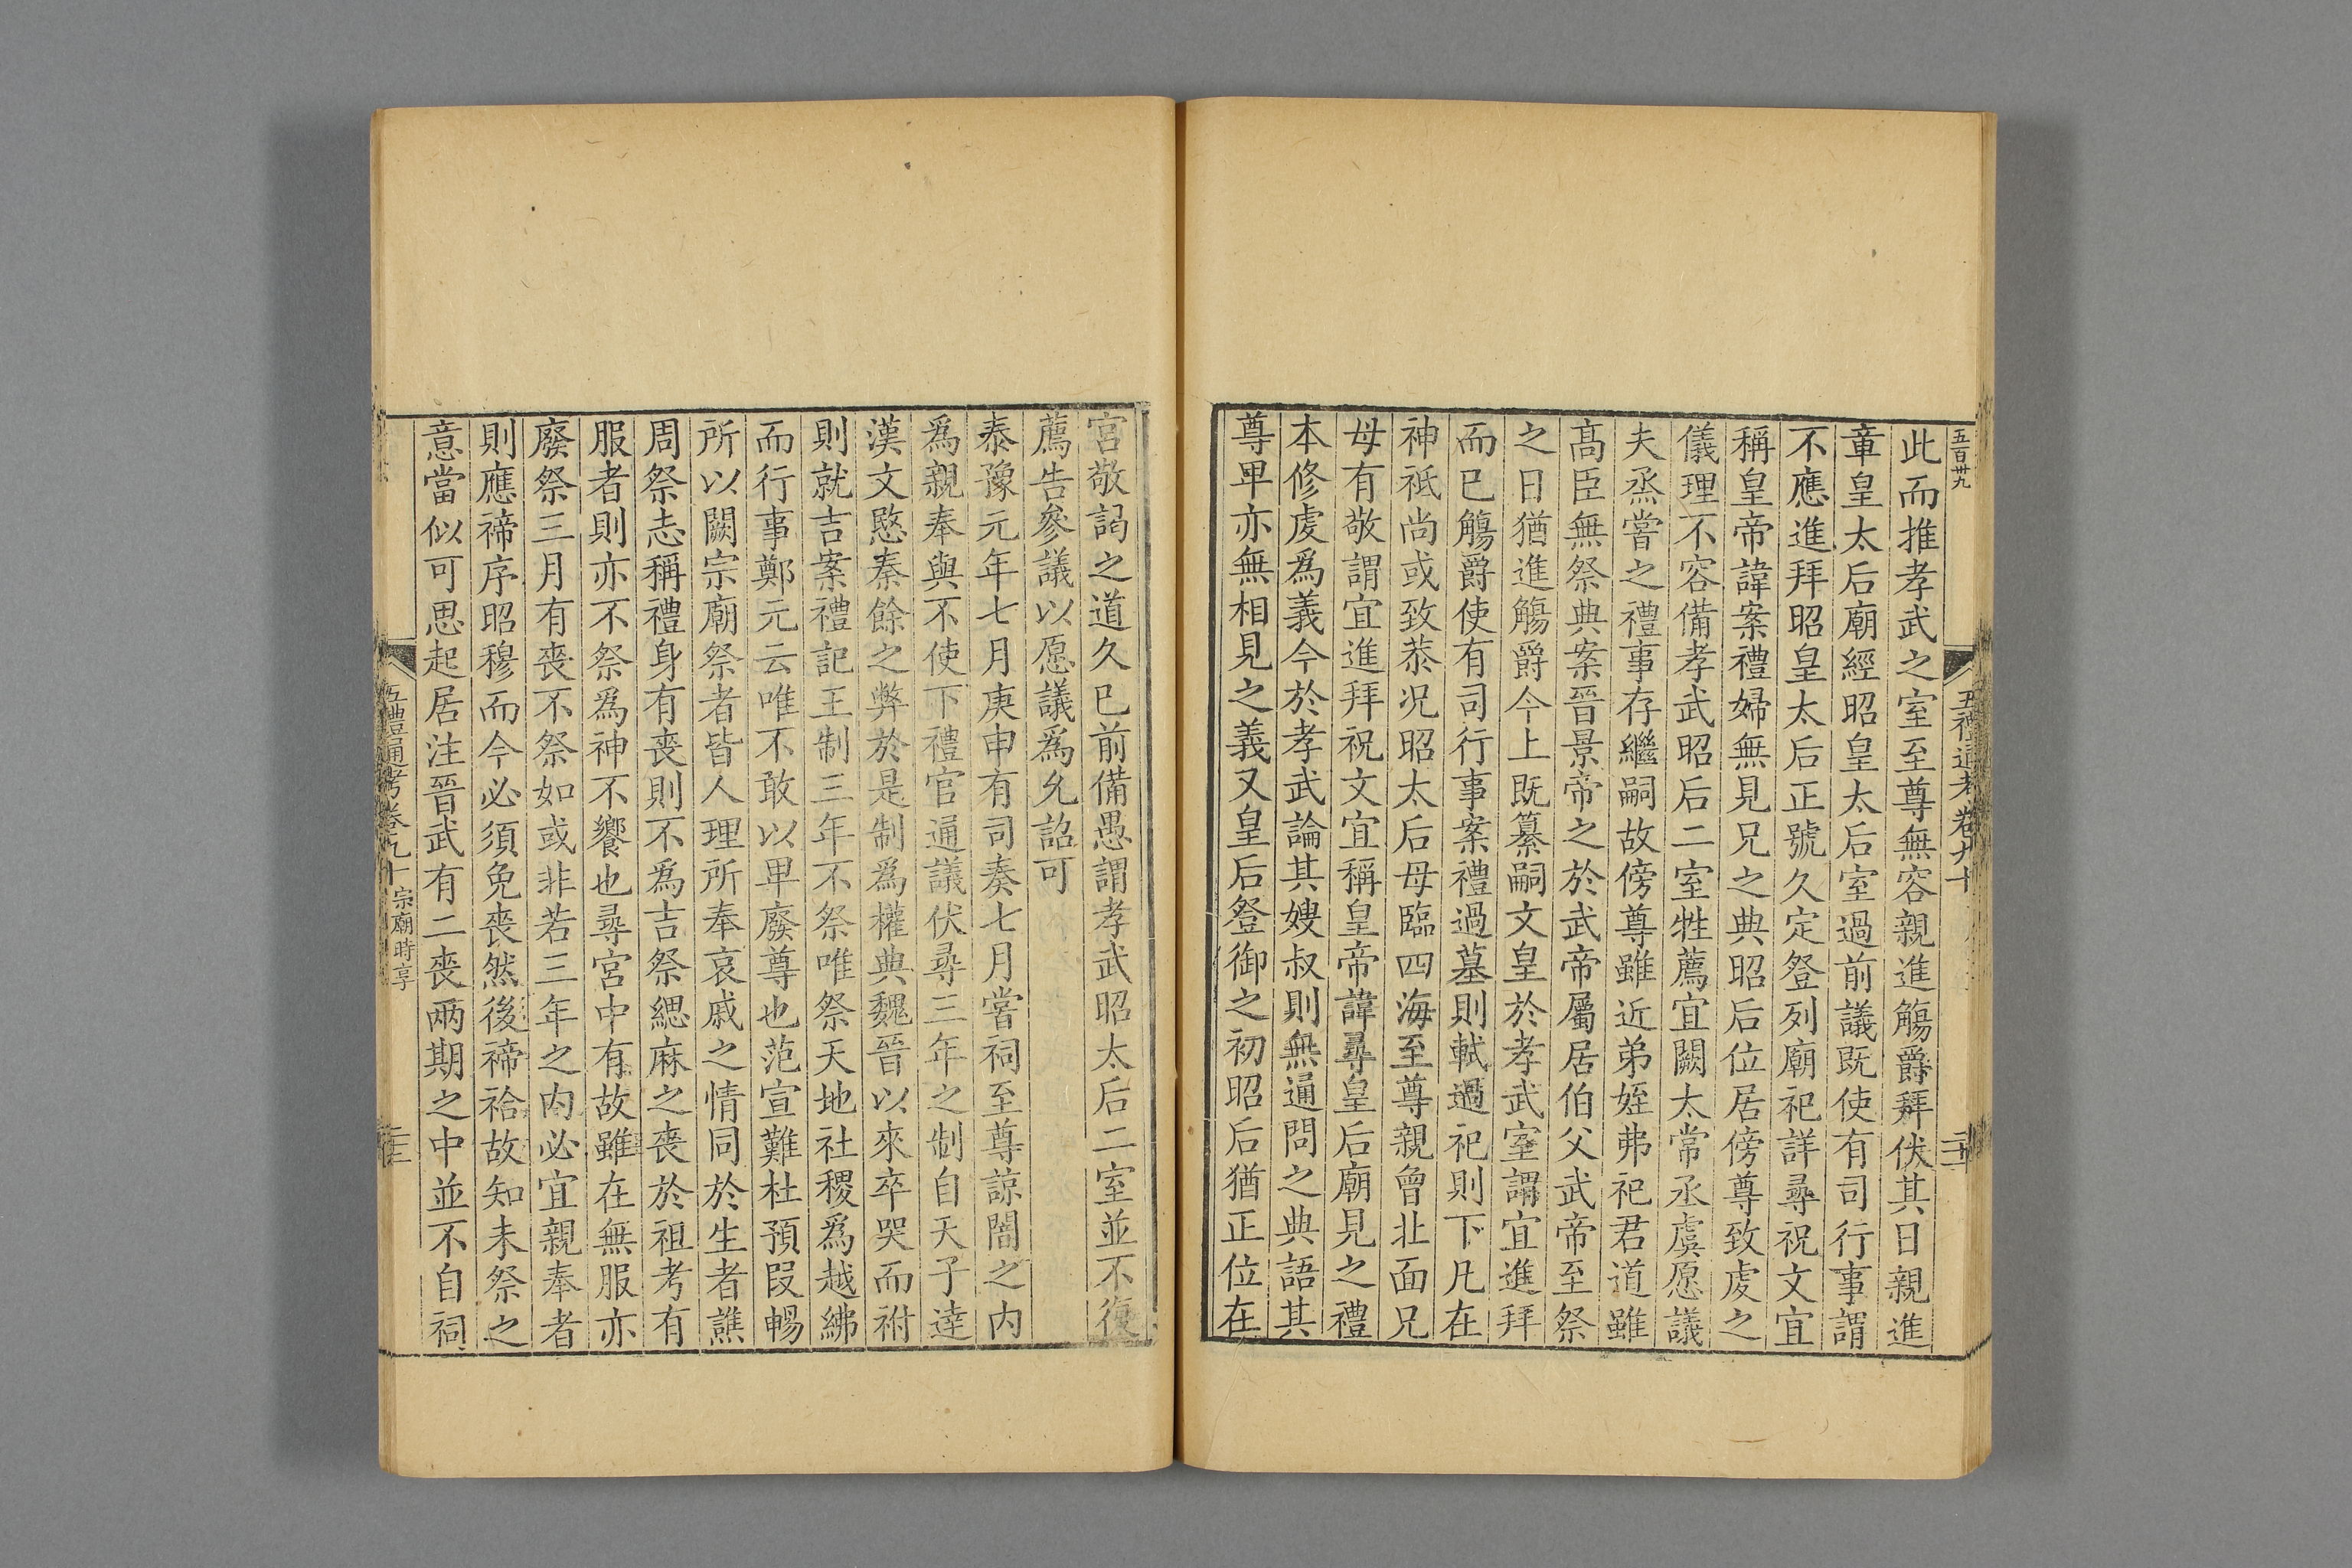 五百卅九
五禮通考卷九十
此而推孝武之室至尊無容親進觴爵拜伏其日親進
章皇太后廟經昭皇太后室過前議既使有司行事謂
不應進拜昭皇太后正號久定登列廟祀詳尋祝文宜
稱皇帝諱案禮婦無見兄之典昭后位居傍尊致虔之
儀理不容備孝武昭后二室牲薦宜闕太常丞虞愿議
夫烝嘗之禮事存繼嗣故傍尊雖近弟姪弗祀君道雖
髙臣無祭典案晉景帝之於武帝屬居伯父武帝至祭
之日猶進觴爵今上既纂嗣文皇於孝武室謂宜進拜
而已觴爵使有司行事案禮過墓則軾過祀則下凡在
神祇尚或致恭况昭太后母臨四海至尊親曾北面兄
母有敬謂宜進拜祝文宜稱皇帝諱尋皇后廟見之禮
本修虔爲義今於孝武論其嫂叔則無通問之典語其
尊卑亦無相見之義又皇后登御之初昭后猶正位在
宮敬謁之道久已前備愚謂孝武昭太后二室並不復
薦告參議以愿議爲允詔可
泰豫元年七月庚申有司奏七月嘗祠至尊諒闇之内
爲親奉與不使下禮官通議伏尋三年之制自天子達
漢文愍秦餘之弊於是制爲權典魏晉以來卒哭而祔
則就吉案禮記王制三年不祭唯祭天地社稷爲越紼
而行事鄭元云唯不敢以卑廢尊也范宣難杜預叚暢
所以闕宗廟祭者皆人理所奉哀戚之情同於生者譙
周祭志稱禮身有喪則不爲吉祭緦麻之喪於祖考有
服者則亦不祭爲神不饗也尋宮中有故雖在無服亦
廢祭三月有喪不祭如或非若三年之内必宜親奉者
則應禘序昭穆而今必須免喪然後禘祫故知未祭之
意當似可思起居注晉武有二喪兩期之中並不自祠
五禮通考卷九十 宗廟時享